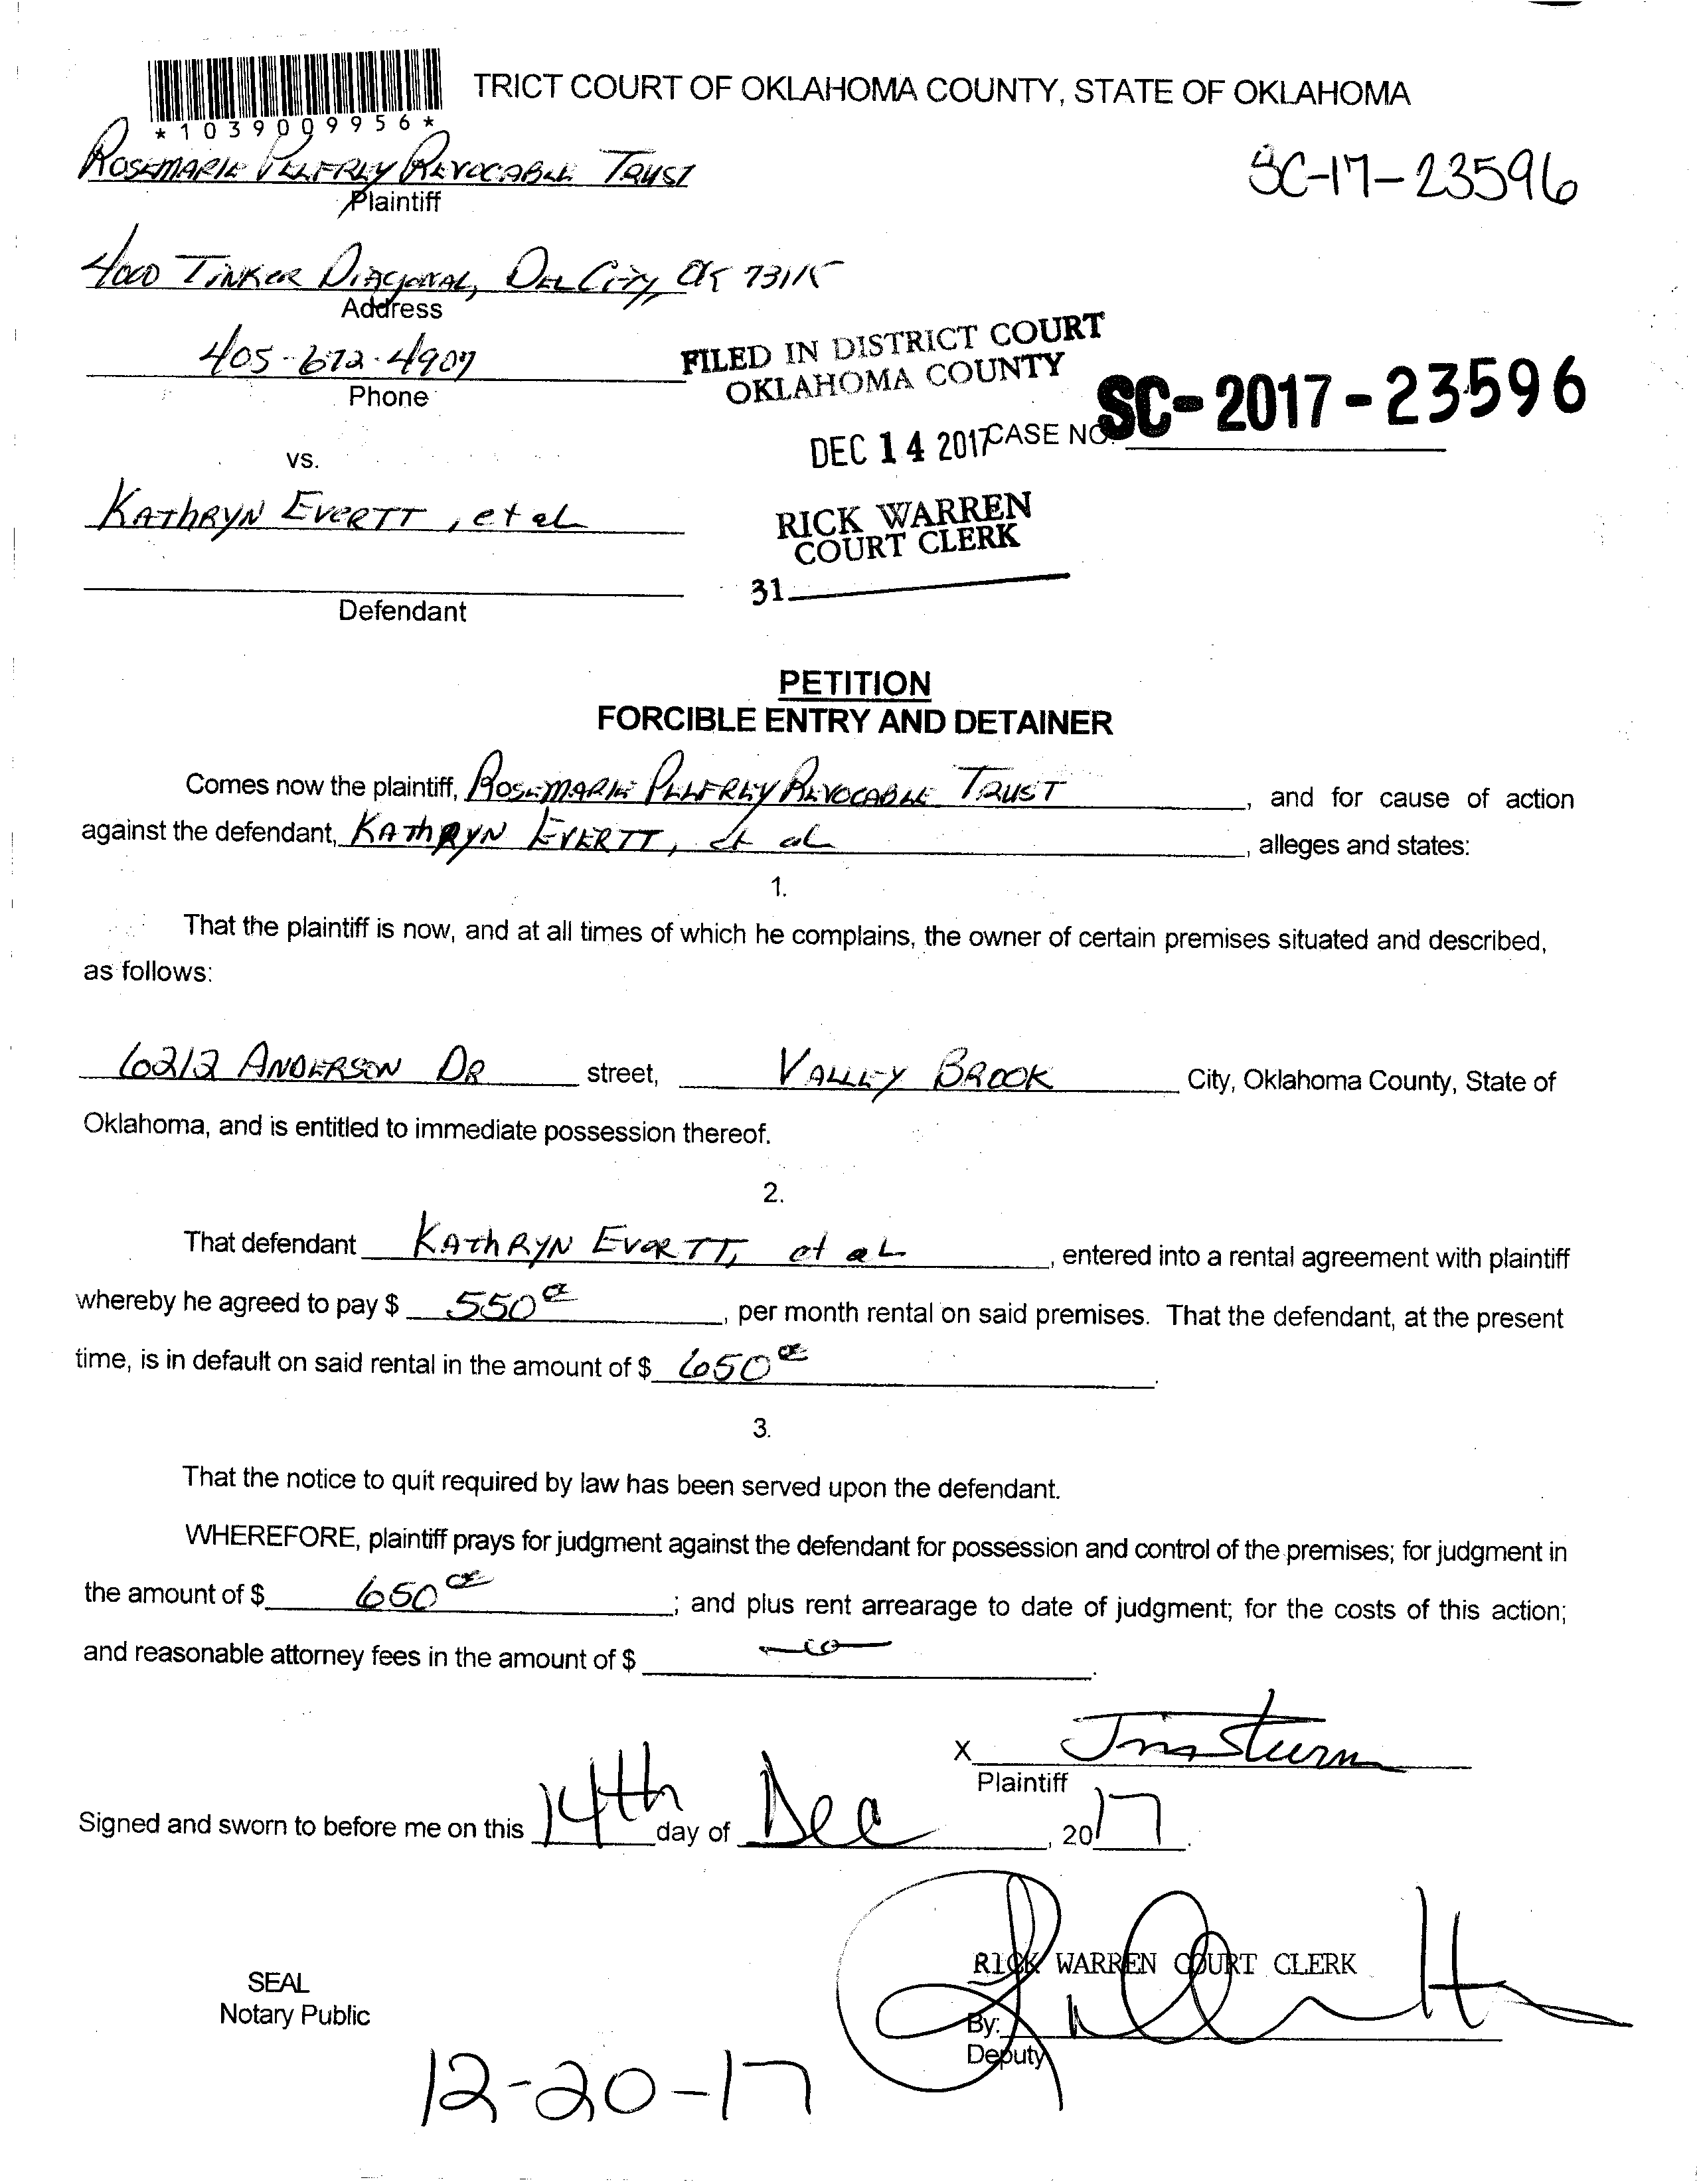 TRICT COURT OF OKLAHOMA COUNTY, STATE OF OKLAHOMA
*1039009956*
ROSEMARIE PELFREY REVOCABLE TRUST
SC-17-23596
Plaintiff
4000 TINKER DIAGONAL, DEL CITY, OK 73115
Address
405-672-4907
Phone
FILED IN DISTRICT COURT
OKLAHOMA COUNTY
DEC 14 2017
CASE NO. SC-2017-23596
vs.
KATHRYN EVERTT, et al
RICK WARREN
COURT CLERK
31
Defendant
PETITION
FORCIBLE ENTRY AND DETAINER
Comes now the plaintiff, ROSEMARIE PELFREY REVOCABLE TRUST, and for cause of action
against the defendant, KATHRYN EVERTT, et al, alleges and states:
1.
That the plaintiff is now, and at all times of which he complains, the owner of certain premises situated and described,
as follows:
6212 ANDERSON DR street, VALLEY BROOK City, Oklahoma County, State of
Oklahoma, and is entitled to immediate possession thereof.
2.
That defendant KATHRYN EVERTT, et al, entered into a rental agreement with plaintiff
whereby he agreed to pay $ 550 00, per month rental on said premises. That the defendant, at the present
time, is in default on said rental in the amount of $ 650 00.
3.
That the notice to quit required by law has been served upon the defendant.
WHEREFORE, plaintiff prays for judgment against the defendant for possession and control of the premises; for judgment in
the amount of $ 650 00; and plus rent arrearage to date of judgment; for the costs of this action;
and reasonable attorney fees in the amount of $ .
X
Plaintiff
Signed and sworn to before me on this 14th day of Dec, 2017.
RICK WARREN COURT CLERK
SEAL
Notary Public
By:
Deputy
12-20-17